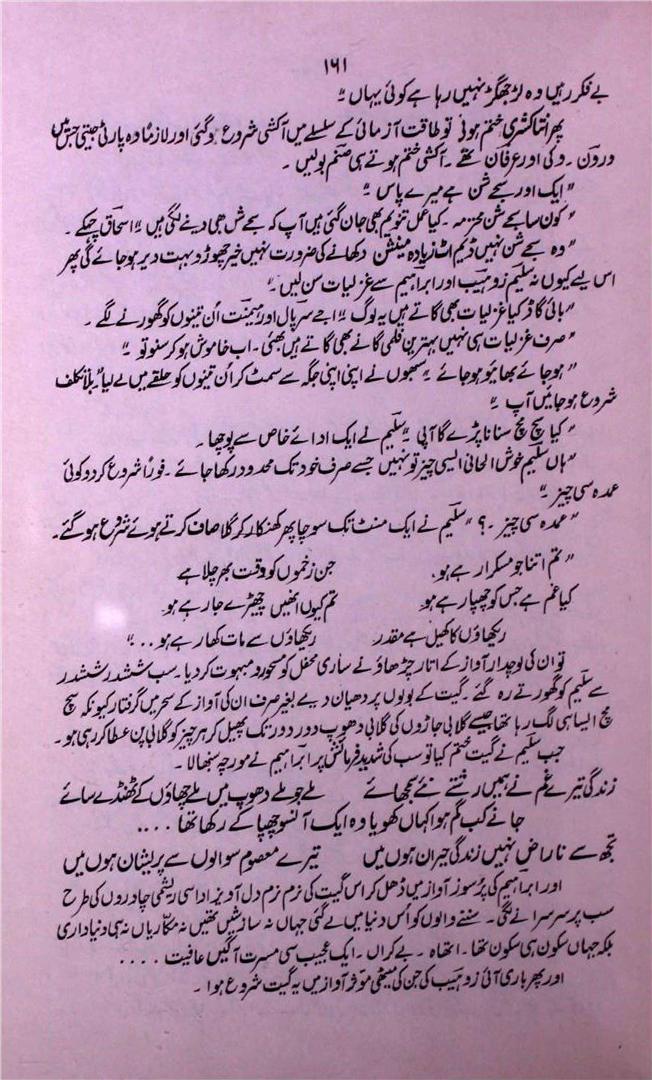 ۱۶۱
بے فکر رہیں وہ لڑ جھگڑ نہیں رہا ہے کوئی یہاں ۔"
پھر انتاکشری ختم ہوئی تو طاقت آزمائی کے سلسلے میں آکشی شروع ہوگئی اور لازماً وہ پارٹی جیتی جس میں
ورون ۔ وکی اور عرفان تھے ۔ آکشی ختم ہوتے ہی صنم بولیں ۔
"ایک اور سجے شن ہے میرے پاس ۔"
"کون سا سجے شن محترمہ ۔ کیا عمل تنویم بھی جان گئی ہیں آپ کہ سجے شن بھی دینے لگی ہیں ۔" اسحاق چہکے ۔
"وہ سجے شن نہیں ڈیم اٹ زیادہ مینشن دکھانے کی ضرورت نہیں خیر چھوڑو بہت دیر ہو جائے گی پھر
اس لیے کیوں نہ سلیم زوہیب اور ابراہیم سے غزلیات سن لیں ۔"
"ہائی گاڈ کیا غزلیات بھی گاتے ہیں یہ لوگ ۔" اجے سریال اور ہیمنت اُن تینوں کو گھورنے لگے ۔
"صرف غزلیات ہی نہیں بہترین فلمی گانے بھی گاتے ہیں بھئی ۔ اب خاموش ہو کر سنو تو ۔"
"ہو جائے بھائیو ہو جائے ۔" سبھوں نے اپنی اپنی جگہ سے سمٹ کر اُن تینوں کو حلقے میں لے لیا "بلا تکلف
شروع ہو جائیں آپ ۔"
"کیا سچ مچ سنانا پڑے گا آپی ۔" سلیم نے ایک ادائے خاص سے پوچھا ۔
"ہاں سلیم خوش الحانی ایسی چیز تو نہیں جسے صرف خود تک محدود رکھا جائے ۔ فوراً شروع کردو کوئی
عمدہ سی چیز ۔"
"عمدہ سی چیز ۔؟" سلیم نے ایک منٹ تک سوچا پھر کھنکار کر گلا صاف کرتے ہوئے شروع ہو گئے ۔
"تم اتنا جو مسکرا رہے ہو ۔ جن زخموں کو وقت بھر چلا ہے
کیا غم ہے جس کو چھپا رہے ہو ۔ تم کیوں انہیں چھیڑے جا رہے ہو ۔
ریکھاؤں کا کھیل ہے مقدر ریکھاؤں سے مات کھا رہے ہو ..."
تو ان کی لوچدار آواز کے اتار چڑھاؤ نے ساری محفل کو مسحور و مبہوت کر دیا ۔ سب ششدر ششدر
سے سلیم کو گھورتے رہ گئے ۔ گیت کے بولوں پر دھیان دیے بغیر صرف ان کی آواز کے سحر میں گرفتار کیونکہ سچ
مچ ایسا ہی لگ رہا تھا جیسے گلابی جاڑوں کی گلابی دھوپ دور دور تک پھیل کر ہر چیز کو گلابی پن عطا کر رہی ہو ۔
جب سلیم نے گیت ختم کیا تو سب کی شدید فرمائش پر ابراہیم نے مورچہ سنبھالا ۔
زندگی تیرے غم نے ہمیں رشتے نئے سمجھائے ملے جو ملے دھوپ میں ملے چھاؤں کے ٹھنڈے سائے
جانے کب گم ہوا کہاں کھو یا وہ ایک آنسو چھپا کے رکھا تھا ....
تجھ سے ناراض نہیں زندگی حیران ہوں میں تیرے معصوم سوالوں سے پریشان ہوں میں
اور ابراہیم کی پُرسوز آواز میں ڈھل کر اس گیت کی نرم نرم دل آویز اداسی ریشمی چادروں کی طرح
سب پر سرسرانے لگی ۔ سننے والوں کو اُس دنیا میں لے گئی جہاں نہ سازشیں تھیں نہ مکاریاں نہ ہی دنیاداری
بلکہ جہاں سکون ہی سکون تھا ۔ اتھاہ ۔ بے کراں ۔ ایک عجیب سی مسرت آگیں عافیت ....
اور پھر باری آئی زوہیب کی جن کی میٹھی مؤثر آواز میں یہ گیت شروع ہوا ۔